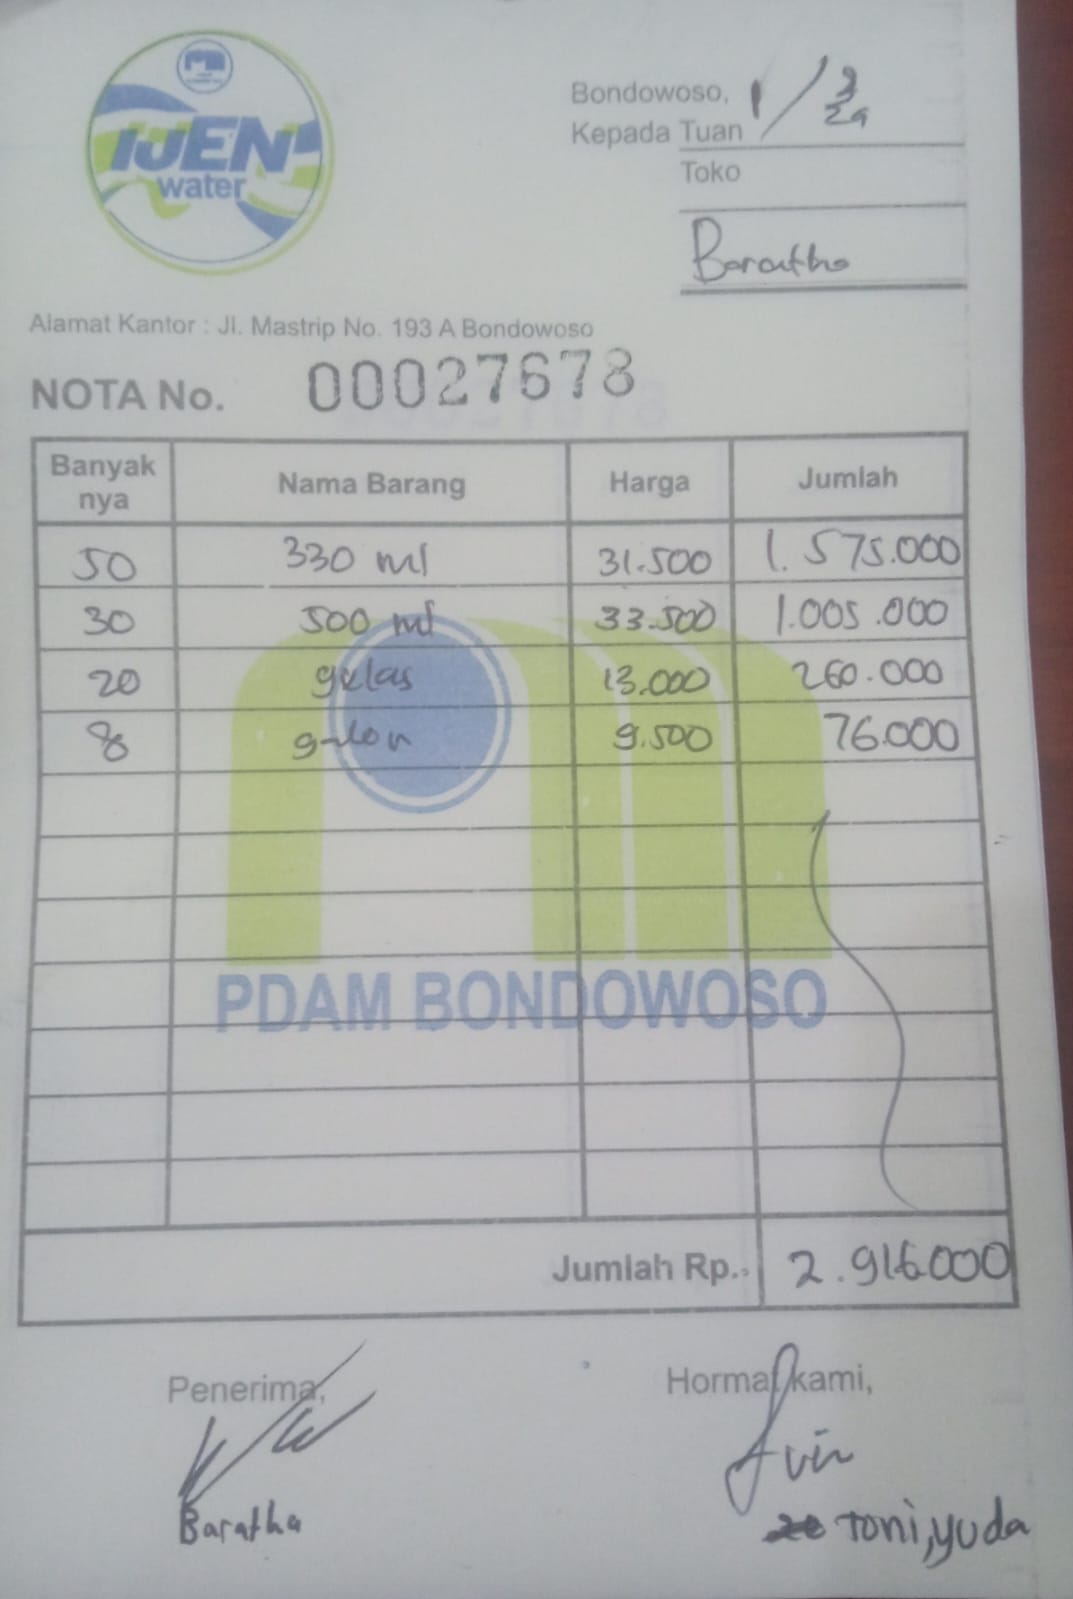 IJEN
water
Bondowoso, 1 / 3
24
Kepada Tuan
Toko
Baratha
Alamat Kantor : Jl. Mastrip No. 193 A Bondowoso
NOTA No. 00027678
Banyak nya Nama Barang Harga Jumlah
50 330 ml 31.500 1.575.000
30 500 ml 33.500 1.005.000
20 gelas 13.000 260.000
8 galon 9.500 76.000
PDAM BONDOWOSO
Jumlah Rp. 2.916.000
Penerima, Hormat kami,
Baratha Toni, yuda